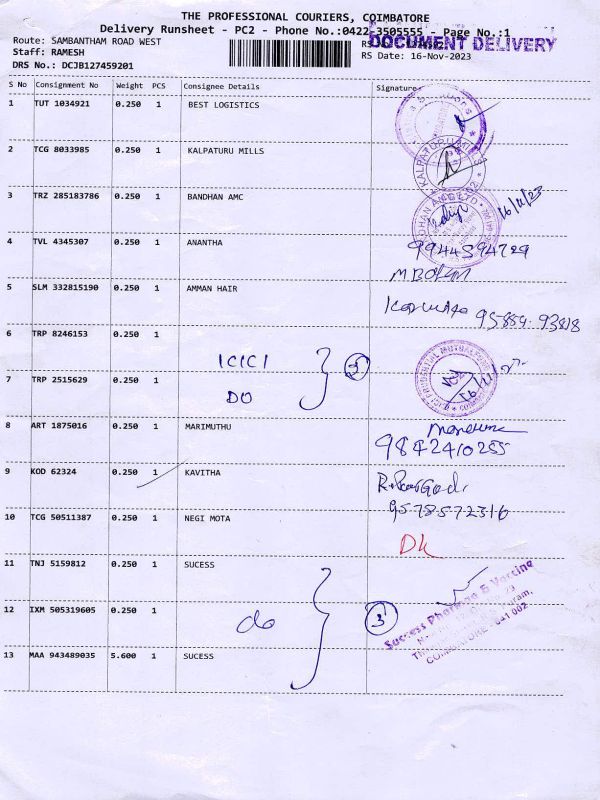 THE PROFESSIONAL COURIERS, COIMBATORE
Delivery Runsheet - PC2 - Phone No.:0422-3505555 - Page No.:1
DOCUMENT DELIVERY
Route: SAMBANTHAM ROAD WEST
Staff: RAMESH
RS Date: 16-Nov-2023
DRS No.: DCJB127459201
S No Consignment No Weight PCS Consignee Details Signature
1 TUT 1034921 0.250 1 BEST LOGISTICS
2 TCG 8033985 0.250 1 KALPATURU MILLS
3 TRZ 285183786 0.250 1 BANDHAN AMC 16/11/23
4 TVL 4345307 0.250 1 ANANTHA
9944594729
5 SLM 332815190 0.250 1 AMMAN HAIR
95854-93818
6 TRP 8246153 0.250 1
ICICI
7 TRP 2515629 0.250 1
DO
8 ART 1875016 0.250 1 MARIMUTHU
9842410255
9 KOD 62324 0.250 1 KAVITHA
9578572316
10 TCG 50511387 0.250 1 NEGI MOTA
11 TNJ 5159812 0.250 1 SUCESS
12 IXM 505319605 0.250 1 do 3
Success Pharma & Vaccine
COIMBATORE - 641 002
13 MAA 943489035 5.600 1 SUCESS